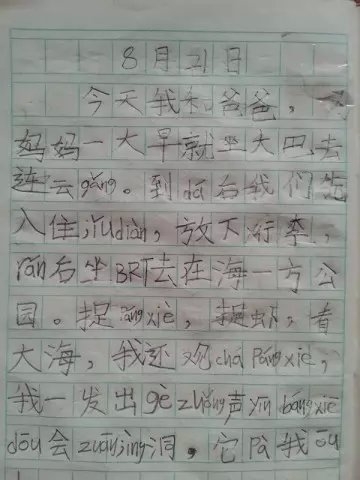 8月21日
今天我和爸爸,
妈妈一大早就坐大巴去
连云gǎng。到dá后我们先
入住jiǔdiàn,放下行李,
rán后坐BRT去在海一方公
园。捉páng xiè,捉虾,看
大海,我还观chá páng xiè,
我一发出gè zhǒng声yīn bángxiè
dōu会zuānjìng洞,它pà我ōu